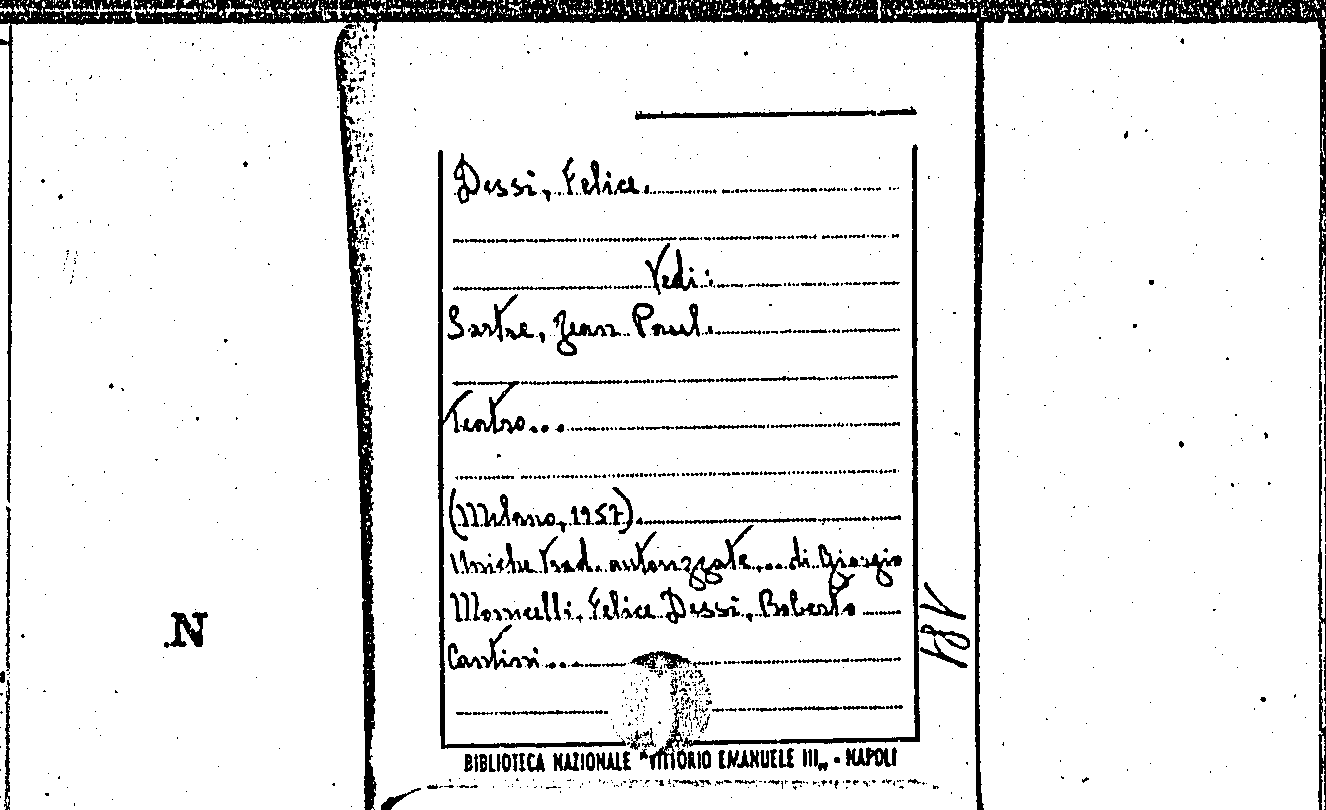 Dessi, Felice.
Vedi:
Sartre, Jean Paul.
Teatro...
(Milano, 1957).
Uniche trad. autorizzate... di Giorgio
Monicelli, Felice Dessi, Roberto
Cantini...
BIBLIOTECA NAZIONALE "VITTORIO EMANUELE III„ - NAPOLI
N